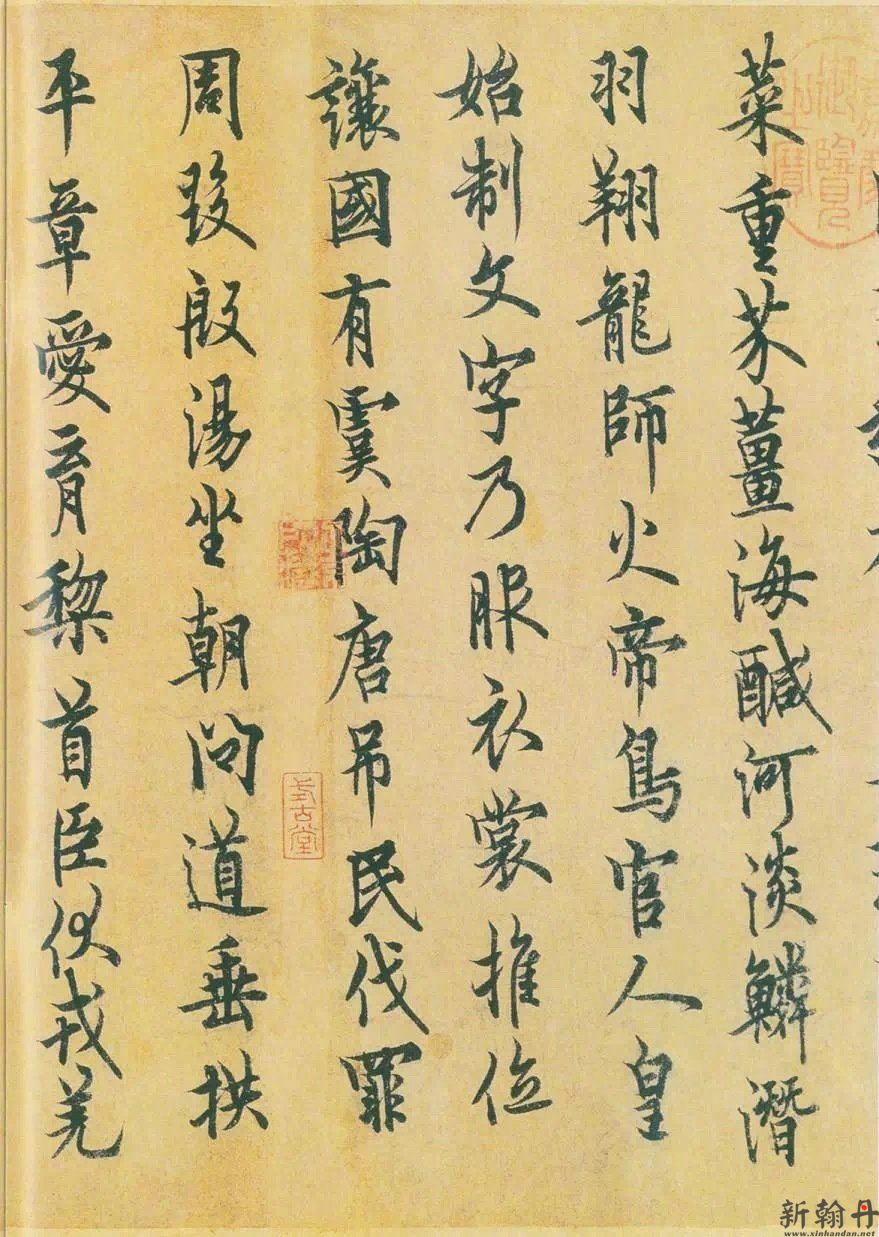 菜重芥薑海醎河淡鱗潛
羽翔龍師火帝鳥官人皇
始制文字乃服衣裳推位
讓國有虞陶唐吊民伐罪
周發殷湯坐朝問道垂拱
平章愛育黎首臣伏戎羌
御覽
式古堂
新翰丹
www.xinhandan.net